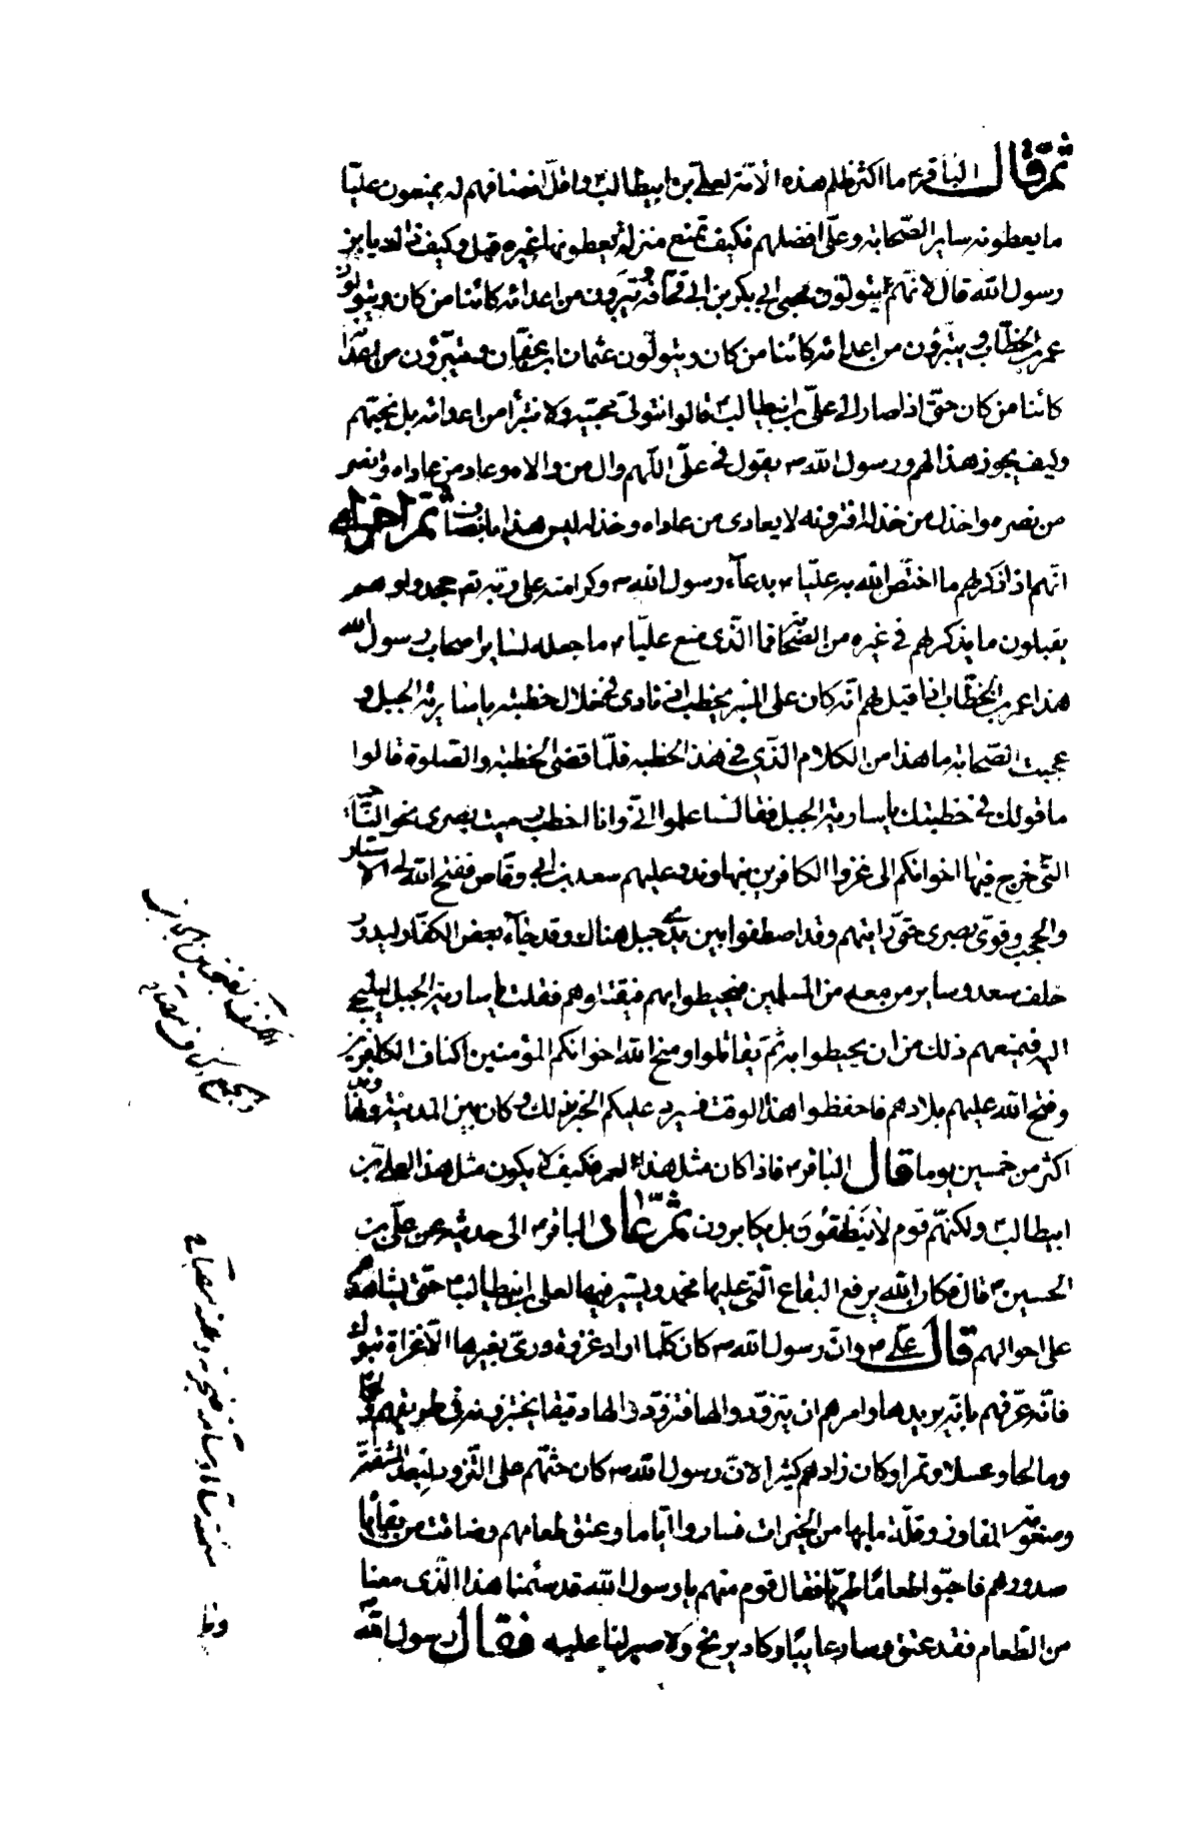 ثمّ قال الباقر ع ما اكثر ظلم هذه الامّة لعلّي بن ابيطالب ع واقلّ انصافهم له يمنعون عليّا
ما يعطونه ساير الصّحابة وعلّى افضلهم فكيف تمنع منزلة يعطونها غيره قيل وكيف ذلك يا بن
رسول الله قال لانّهم يتولّون محبى ابى بكر بن ابى قحافة و يتبرّون من اعدائه كائنا من كان ويتولّون
عمر بن الخطّاب و يتبرّؤن من اعدائه كائنا من كان ويتولّون عثمان ابن عفّان و يتبرّؤن من اعدائه
كائنا من كان حتّى اذا صار الى علىّ بن ابيطالب ع قالوا نتولّى محبّيه ولا نتبرّأ من اعدائه بل نحبّهم
وكيف يجوز هذا لهم ورسول الله ص يقول فى علّى اللّهم وال من والاه وعاد من عاداه وانصر
من نصره واخذل من خذله افترونه لا يعادى من عاداه و خذله ليس هذا بانصاف ثمّ اخرى
انّهم اذا ذكر لهم ما اختصّ الله به عليّا ع بدعاء رسول الله ص وكرامته على ربّه تع جحدوه وهم
يقبلون ما يذكر لهم فى غيره من الصّحابة فما الّذى منع عليّا ع ما جعله لساير اصحاب رسول الله
هذا عمر بن الخطّاب اذا قيل لهم انّه كان على المنبر يخطب اذ نادى فى خلال خطبته يا سارية الجبل و
عجبت الصّحابة ما هذا من الكلام الّذى فى هذه الخطبه فلمّا قضى الخطبة والصّلوة قالوا
ما قولك فى خطبتك يا سارية الجبل فقال اعلموا انّى وانا اخطب رميت بصرى نحو النّاحية
التّى خرج فيها اخوانكم الى غزو الكافرين بنهاوند و عليهم سعد بن ابى وقّاص ففتح الله لى الاستار
والحجب و قوّى بصرى حتّى رايتهم وقد اصطفوا بين يدى جبل هناك وقد جاء بعض الكفّار ليدور
خلف سعد و ساير من معه من المسلمين فيحيطوا بهم فيقتلوهم فقلت يا سارية الجبل ليلتجى
اليه فيمنعهم ذلك من ان يحيطوا به ثمّ يقاتلوا ومنح الله اخوانكم المؤمنين اكناف الكافرين
وفتح الله عليهم بلادهم فاحفظوا هذا الوقت فسيرد عليكم الخبر بذلك و كان بين المدينة ونهاوند
اكثر من خمسين يوما قال الباقر ع فاذا كان مثل هذا لعمر فكيف لا يكون مثل هذا لعلّى بن
ابيطالب ع ولكنّهم قوم لا ينصفون بل يكابرون ثمّ عاد الباقر ع الى حديثه عن علّى بن
الحسين ع قال فكان الله يرفع البقاع الّتى عليها محمّد و يسير فيها لعلى بن ابيطالب ع حتّى يشاهدهم
على احوالهم قال علّى ع وانّ رسول الله ص كان كلّما اراد غزوة ورىّ بغيرها الّا غزاة تبوك
فانّه عرّفهم بانّه يريدها وامرهم ان يتزوّدوا لها فتزوّدوا لها دقيقا يختبزونه فى طريقهم ولحما
ومالحا وعسلا وتمرا وكان زادهم كثيرا لانّ رسول الله ص كان حثّهم على التّزود لبعد الشّقّة
وصعوبة المفاوز وقلّة ما بها من الخيرات فساروا ايّاما و عتق طعامهم وضاقت من بقاياه
صدورهم فاحبّوا طعاما طريّا فقال قوم منهم يا رسول الله قد سئمنا هذا الّذى معنا
من الطّعام فقد عتق وصار يابسا وكاد يريح ولا صبر لنا عليه فقال رسول الله